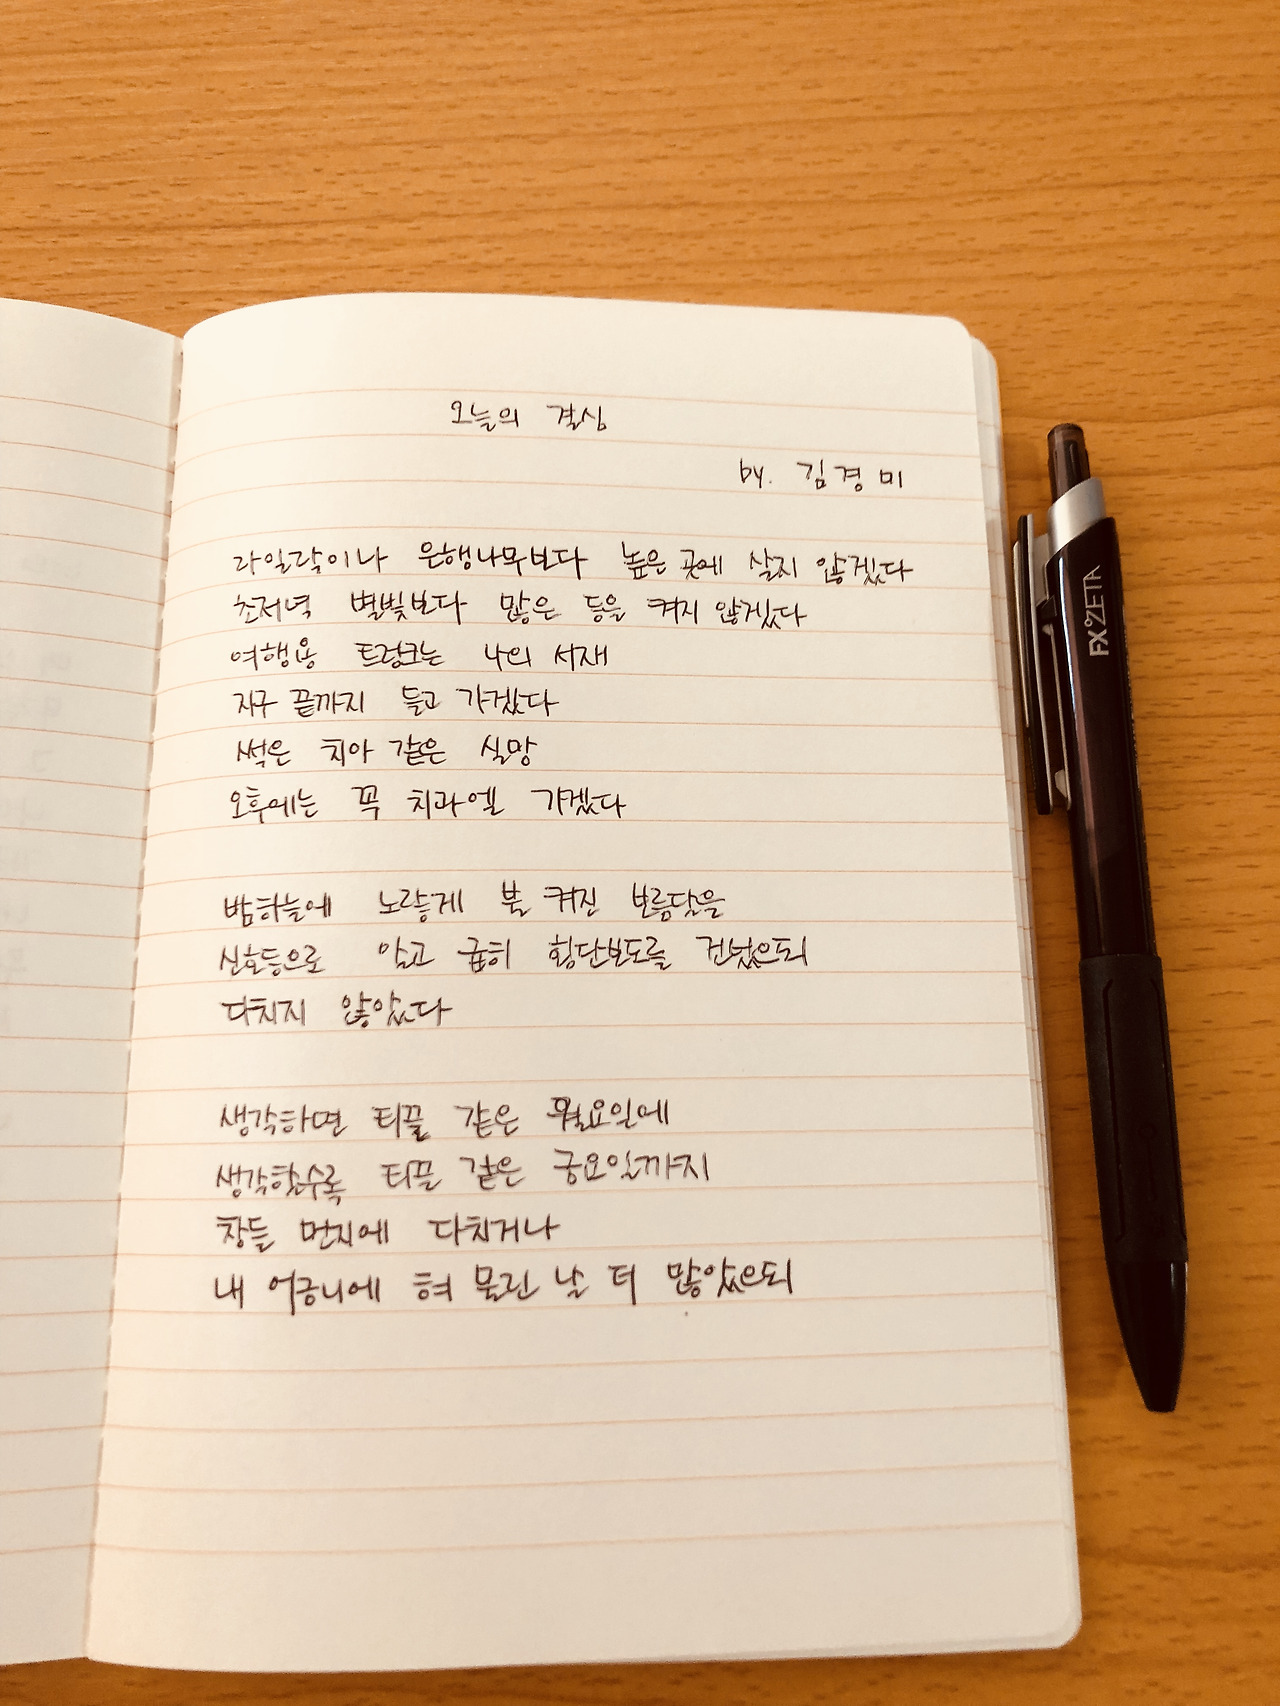 오늘의 결심
by. 김경미
라일락이나 은행나무보다 높은 곳에 살지 않겠다
초저녁 별빛보다 많은 등을 켜지 않겠다
여행용 트렁크는 나의 서재
지구 끝까지 들고 가겠다
썩은 치아 같은 실망
오후에는 꼭 치과엘 가겠다
밤하늘에 노랗게 불 켜진 보름달을
신호등으로 알고 급히 횡단보도를 건넜으되
다치지 않았다
생각하면 티끌 같은 월요일에
생각할수록 티끌 같은 금요일까지
창틀 먼지에 다치거나
내 어금니에 혀 물린 날 더 많았으되
FX ZETA